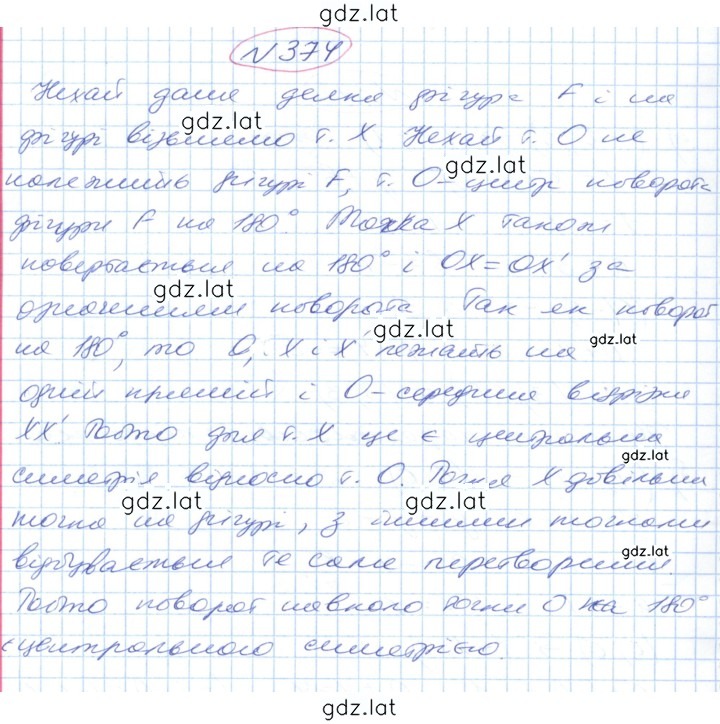 gdz.lat
N 374
Нехай дана деяка фігура F і на
gdz.lat
фігурі візьмемо т. X. Нехай т. O не
gdz.lat
належить фігурі F, т. O – центр поворота
фігури F на 180°. Точка X також
повертається на 180° і OX = OX' за
gdz.lat
означенням поворота. Так як поворот
gdz.lat
gdz.lat
на 180°, то O, X і X' лежать на
одній прямій і O – середина відрізка
XX'. Тобто для т. X це є центральна
gdz.lat
симетрія відносно т. O. Точка X довільна
gdz.lat
gdz.lat
точка на фігурі, з іншими точками
gdz.lat
відбувається те саме перетворення.
Тобто поворот навколо точки O на 180°
є центральною симетрією.
gdz.lat